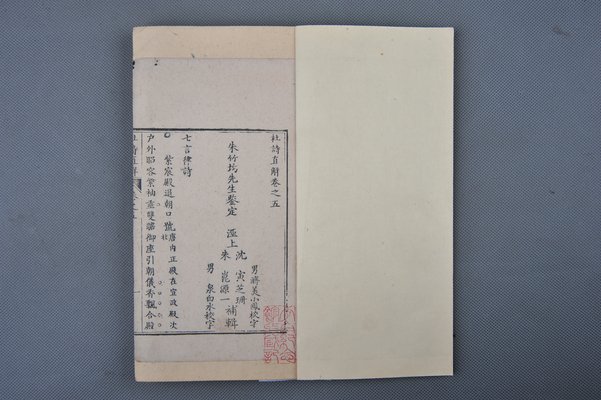 杜詩直解卷之五
朱竹垞先生鑒定 涇上
沈 寅芝珊
朱 崑源一
補輯
男蔣美小鳳校字
男 泉白水校字
七言律詩
紫宸殿退朝口號
唐內正殿在宣政殿次北
户外昭容紫袖垂雙瞻御座引朝儀香飄合殿